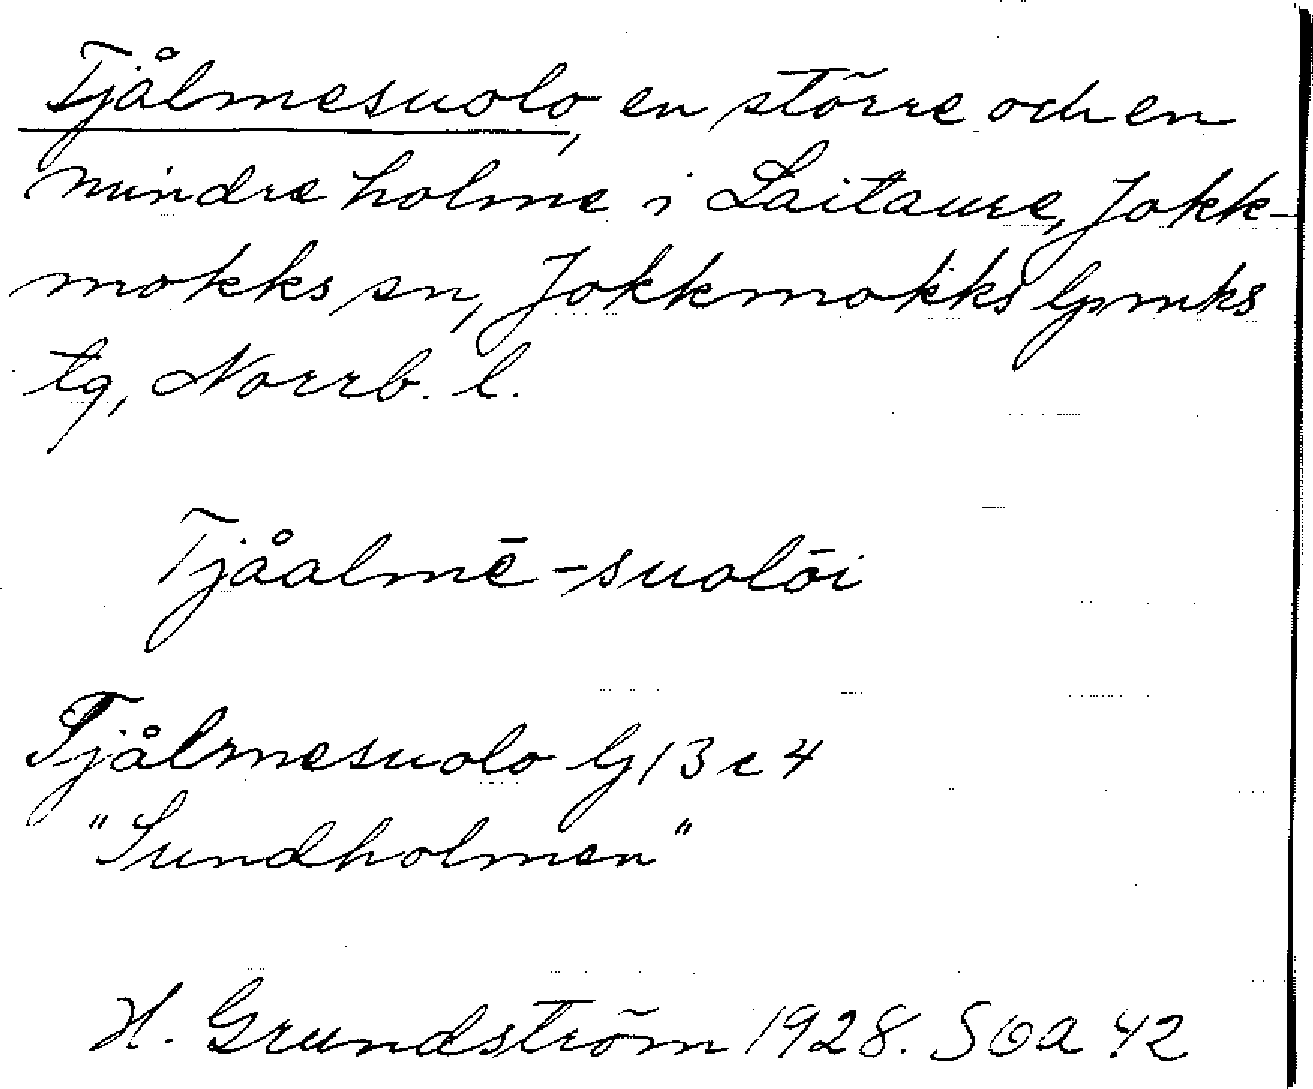 Tjålmesuolo, en större och en
mindre holme i Laitaure, Jokk-
mokks sn, Jokkmokks lpmks
tg, Norrb. l.
Tjåalmē-suolōi
Tjålmesuolo G 13 c 4
"Sundholmen"
H. Grundström 1928. SOA 42